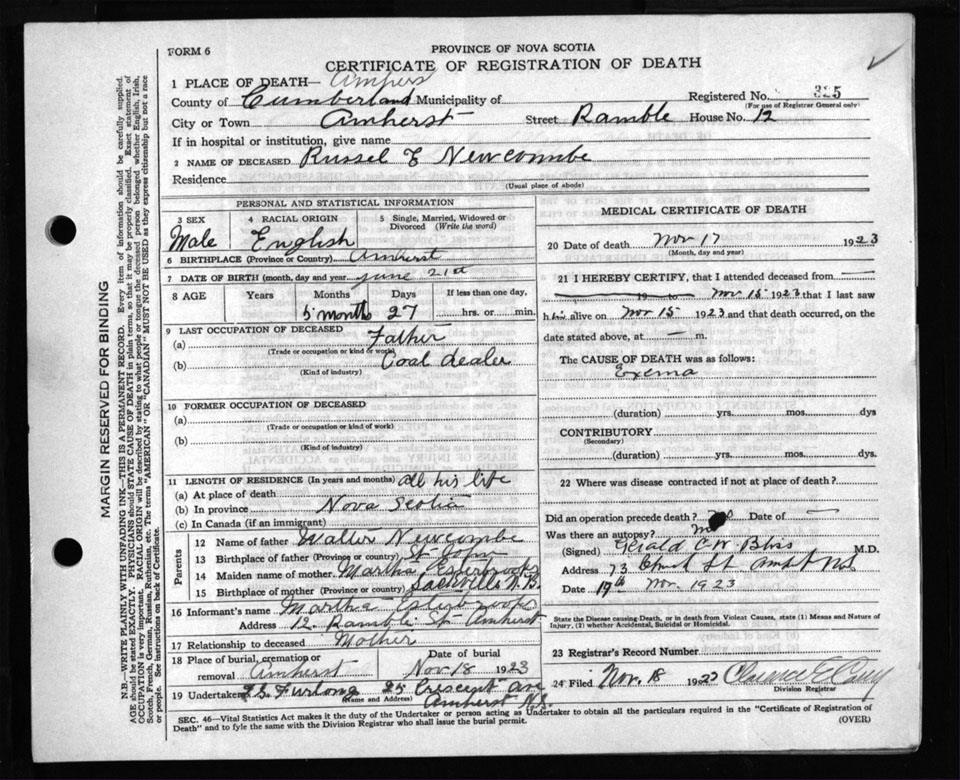 FORM 6
PROVINCE OF NOVA SCOTIA
CERTIFICATE OF REGISTRATION OF DEATH
1 PLACE OF DEATH— Amhers
County of Cumberland Municipality of Registered No. 325
(For use of Registrar General only)
City or Town Amherst Street Ramble House No. 12
If in hospital or institution, give name
2 NAME OF DECEASED Russel E Newcombe
Residence
(Usual place of abode)
PERSONAL AND STATISTICAL INFORMATION
3 SEX Male
4 RACIAL ORIGIN English
5 Single, Married, Widowed or Divorced (Write the word)
6 BIRTHPLACE (Province or Country) Amherst
7 DATE OF BIRTH (month, day and year) June 21st
8 AGE Years Months Days If less than one day,
5 months 27 hrs. or min.
9 LAST OCCUPATION OF DECEASED
(a) Father
(Trade or occupation or kind of work)
(b) Coal dealer
(Kind of industry)
10 FORMER OCCUPATION OF DECEASED
(a)
(Trade or occupation or kind of work)
(b)
(Kind of industry)
11 LENGTH OF RESIDENCE (In years and months) all his life
(a) At place of death
(b) In province Nova Scotia
(c) In Canada (if an immigrant)
Parents
12 Name of father Walter Newcombe
13 Birthplace of father (Province or country) St John
14 Maiden name of mother Martha
15 Birthplace of mother (Province or country) Sackville N.B.
16 Informant's name Martha
Address 12 Ramble St Amherst
17 Relationship to deceased Mother
18 Place of burial, cremation or removal Amherst Date of burial Nov 18 1923
19 Undertaker Furlong 25 Crescent Ave
(Name and Address) Amherst N.S.
MEDICAL CERTIFICATE OF DEATH
20 Date of death Nov 17 1923
(Month, day and year)
21 I HEREBY CERTIFY, that I attended deceased from —
— 19 — to Nov 15 1923 that I last saw
him alive on Nov 15 1923 and that death occurred, on
date stated above, at — m.
The CAUSE OF DEATH was as follows:
Exema
(duration) yrs. mos. dys
CONTRIBUTORY
(Secondary)
(duration) yrs. mos. dys.
22 Where was disease contracted if not at place of death?
Did an operation precede death? no Date of —
Was there an autopsy? no
(Signed) Gerald C. W. Bliss M.D.
Address 73 St Amherst N.S.
Date 19th Nov. 1923
State the Disease causing Death, or in death from Violent Causes, state (1) Means and Nature of
Injury, (2) whether Accidental, Suicidal or Homicidal.
23 Registrar's Record Number
24 Filed Nov. 18 1923 Clarence
Division Registrar
SEC. 46—Vital Statistics Act makes it duty of the Undertaker or person acting as Undertaker to obtain all the particulars required in the "Certificate of Registration of
Death" and to fyle the same with the Division Registrar who shall issue the burial permit. (OVER)
MARGIN RESERVED FOR BINDING
N.B.—WRITE PLAINLY WITH UNFADING INK—THIS IS A PERMANENT RECORD. Every item of information should be carefully supplied.
AGE should be stated EXACTLY. PHYSICIANS should STATE CAUSE OF DEATH in plain terms, so that it may be properly classified. Exact statement of
OCCUPATION is very important. RACIAL ORIGIN will be described by stating to what people or tongue the deceased person belonged whether English, Irish,
Scotch, French, German, Russian, Ruthenian, etc. The terms "AMERICAN" OR "CANADIAN" MUST NOT BE USED as they express citizenship but not a race
or people. See instructions on back of Certificate.